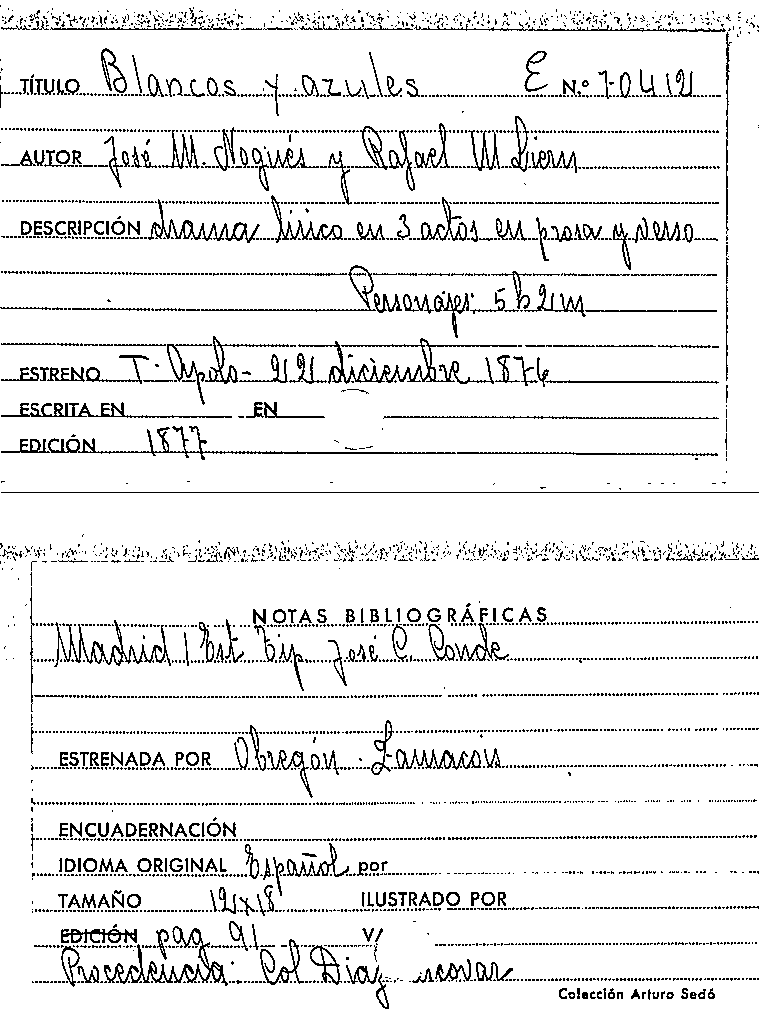 TÍTULO Blancos y azules E N.º 7-04121
AUTOR José M. Nogués y Rafael M Liern
DESCRIPCIÓN drama lírico en 3 actos en prosa y verso
Personajes: 5 h 2 m
ESTRENO T. Apolo - 22 diciembre 1876
ESCRITA EN EN
EDICIÓN 1877
NOTAS BIBLIOGRÁFICAS
Madrid / Est Tip José C. Conde
ESTRENADA POR Obregón - Zamacois
ENCUADERNACIÓN
IDIOMA ORIGINAL Español por
TAMAÑO 12x18 ILUSTRADO POR
EDICIÓN pag 91 V/
Procedencia: Col Diaz
Colección Arturo Sedó